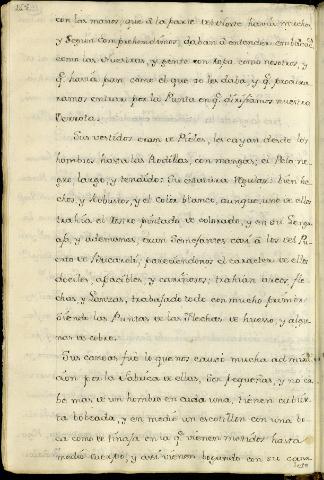 con las manos, que á la parte del Norte havia muchos
y segun comprehendimos, daban á entender embarcac.s
como las nuestras, y gente con Ropa como nosotros, y
q.e havia pan como el que se les daba, y q.e
ramos entrar por la Punta en q.e dirijiamos nuestra
Derrota.
Sus vestidos eran de Pieles, les cayan desde los
hombros hasta las Rodillas, con mangas; el Pelo ne-
gro, largo, y tendido: Su estatura regular: bien he-
chos, y Robustos, y el color blanco, aunque uno de ellos
trahia el Rostro pintado de colorado, y en su Lengu-
aje, y ademanes, eran semejantes casi á los del Pu-
erto de Bucareli; pareciendonos el caracter de ellos
dociles, apacibles y cariñosos; trahian arcos, fle-
chas y Lanzas, trabajado todo con mucho primor
siendo las Puntas de las Flechas de hueso, y algu-
nas de cobre.
Sus canoas fué lo que nos causó mucha admira-
cion por la fabrica de ellas, son pequeñas, y no ca-
be mas de un hombre en cada una, tienen cubier-
ta bobeada, y en medio un escotillon con una bo-
ca como de tinaja en la q.e vienen metidos hasta
medio cuerpo, y asi vienen bogando con su cana-
lete